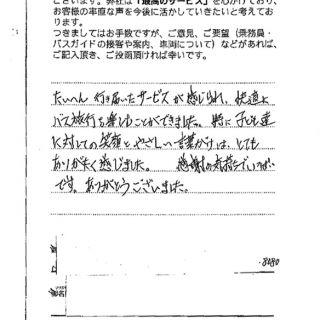 ございます。弊社は「最高のサービス」をめざしており、
お客様の率直な声を今後に活かしていきたいと考えてお
ります。
つきましてはお手数ですが、ご意見、ご要望（乗務員・
バスガイドの接客や案内、車両について）などがあれば、
ご記入頂き、ご投函頂ければ幸いです。
たいへん行き届いたサービスが感じられ、快適に
バス旅行を楽しむことができました。特に子ども達
に対しての笑顔とやさしい言葉かけは、とても
ありがたく感じました。感謝の気持ちでいっぱい
です。ありがとうございました。
8180